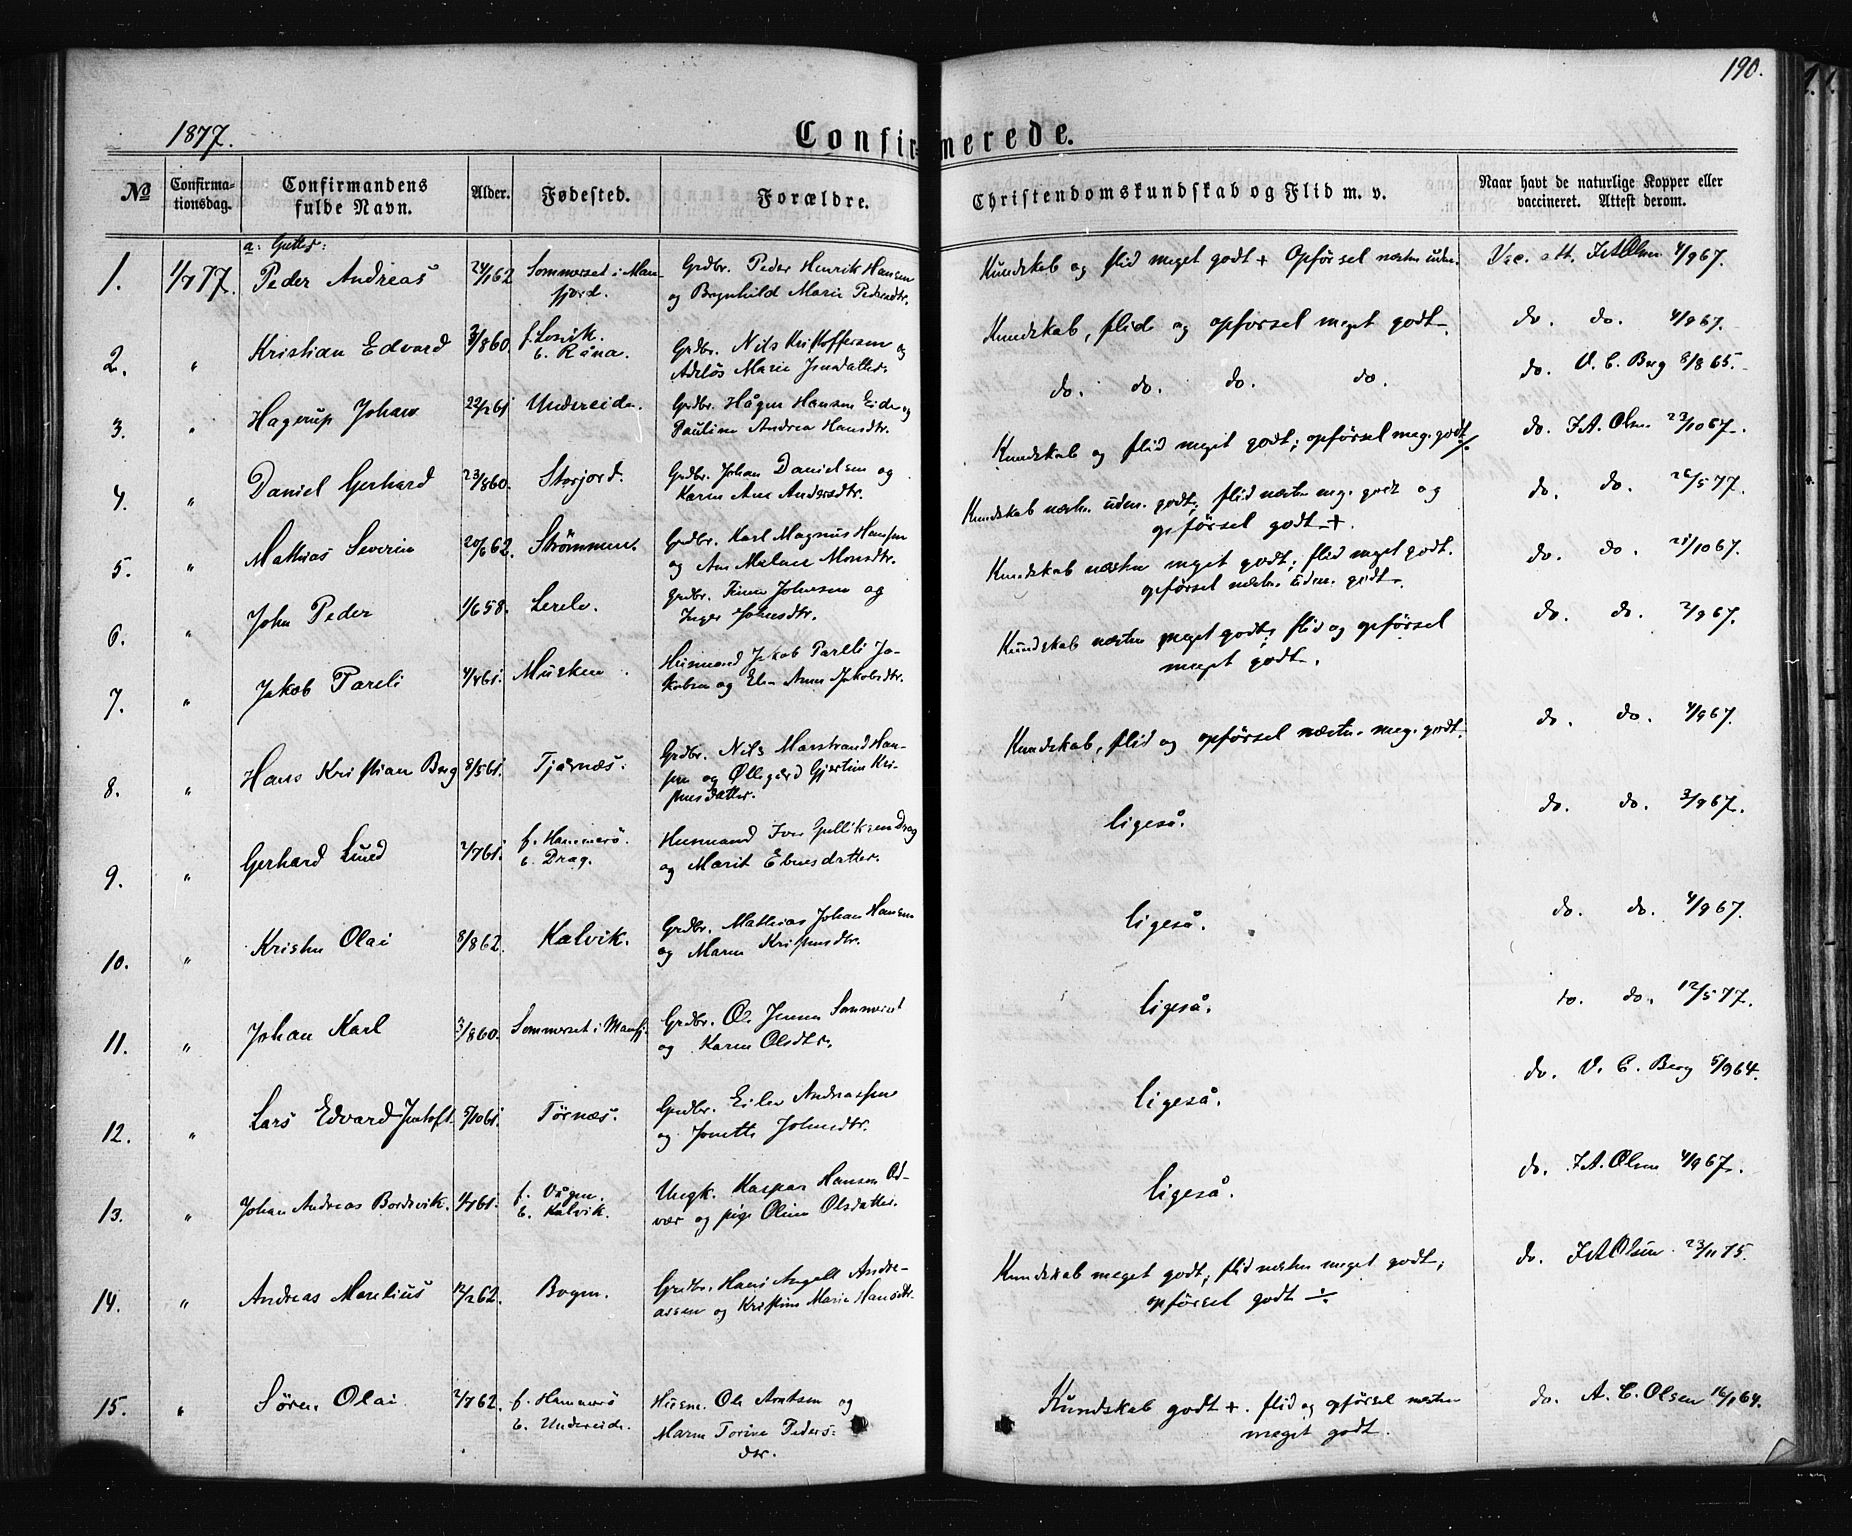 190.
1877.
Confirmerede.
No
Confirma-
tionsdag.
Confirmandens
fulde Navn.
Alder.
Fødested.
Forældre.
Christendomskundskab og Flid m. v.
Naar havt de naturlige Kopper eller
vaccineret. Attest derom.
a: Gutter:
1. 1/7 77. Peder Andreas 24/1 62 Sommerset i Man- Grdbr. Peder Henrik Hansen Kundskab og flid meget godt + Opførsel næsten uden. Vac. att. J.A. Olsen 4/9 67.
fjord. og Brynhild Marie Pedersdtr.
2. " Kristian Edvard 3/8 60. f. Losvik. Grdbr. Nils Kristoffersen og Kundskab, flid og opførsel meget godt. do. do. 4/9 67.
b. Råna. Adeløs Marie Jensdatter.
3. " Hagerup Johan 22/2 61 Undereide. Grdbr. Hågen Hansen Eide og do. do. do. do. do. V. C. Berg 8/8 65.
Pauline Andrea Hansdtr.
4. " Daniel Gerhard 23/8 60. Storjord. Grdbr. Johan Danielsen og Kundskab og flid meget godt; opførsel meg. godt do. J.A. Olsen 23/10 67.
Karen Ane Andersdtr.
5. " Mathias Severin 20/6 62. Strømmen. Grdbr. Karl Magnus Hansen Kundskab næsten uden. godt; flid næsten meg. godt og do. do. 26/5 77.
og Ane Malene Monsdtr. opførsel godt +.
6. " John Peder 1/6 58. Lerelv. Grdbr. Johnsen og Kundskab næsten meget godt; flid meget godt. do. do. 21/10 67.
Inger Johnsdtr. opførsel næsten uden. godt.
7. " Jakob Pareli 4/4 61. Musken. Husmand Jakob Pareli Ja- Kundskab næsten meget godt; flid og opførsel do. do. 2/9 67.
kobsen og Elen Anna Jakobsdtr. meget godt.
8. " Hans Kristian Berg 8/5 61. Tjårnæs. Grdbr. Nils Marstrand Han- Kundskab, flid og opførsel næsten meg. godt. do. do. 4/9 67.
sen og Øllegård Gjertine Kri-
stensdatter.
9. " Gerhard Lund 2/7 61. f. Hammerø. Husmand Iver Gulliksen Drag ligeså. do. do. 3/9 67.
b. Drag. og Marit Ebnesdatter.
10. " Kristen Olai 8/8 62. Kalvik. Grdbr. Mathias Johan Hansen ligeså. do. do. 4/9 67.
og Maren Kristensdtr.
11. " Johan Karl 3/8 60. Sommerset i Manfj. Grdbr. Ole Jensen Sommerset ligeså. do. do. 12/5 77.
og Karen Olsdtr.
12. " Lars Edvard Jentoft 5/10 61. Tørnæs. Grdbr. Eiler Andreassen ligeså. do. V. C. Berg 5/9 64.
og Jonette Johnsdtr.
13. " Johan Andreas Bordsvik. 1/4 61. f. Vågen. Ungk. Kaspar Hansen Od- ligeså. do. J.A. Olsen 4/9 67.
b. Kalvik. vær og pige Oline Olsdatter.
14. " Andreas Marelius 12/2 62. Bogen. Grdbr. Hans Angell Andre- Kundskab meget godt; flid næsten meget godt; do. J.A. Olsen 23/11 75.
assen og Kristine Marie Hansdtr. opførsel godt ÷.
15. " Søren Olai 2/7 62. f. Hammerø Husm. Ole Arntsen og Kundskab godt +. flid og opførsel næsten do. A. C. Olsen 16/1 64.
b. Undereide. Maren Torine Peders- meget godt.
dtr.